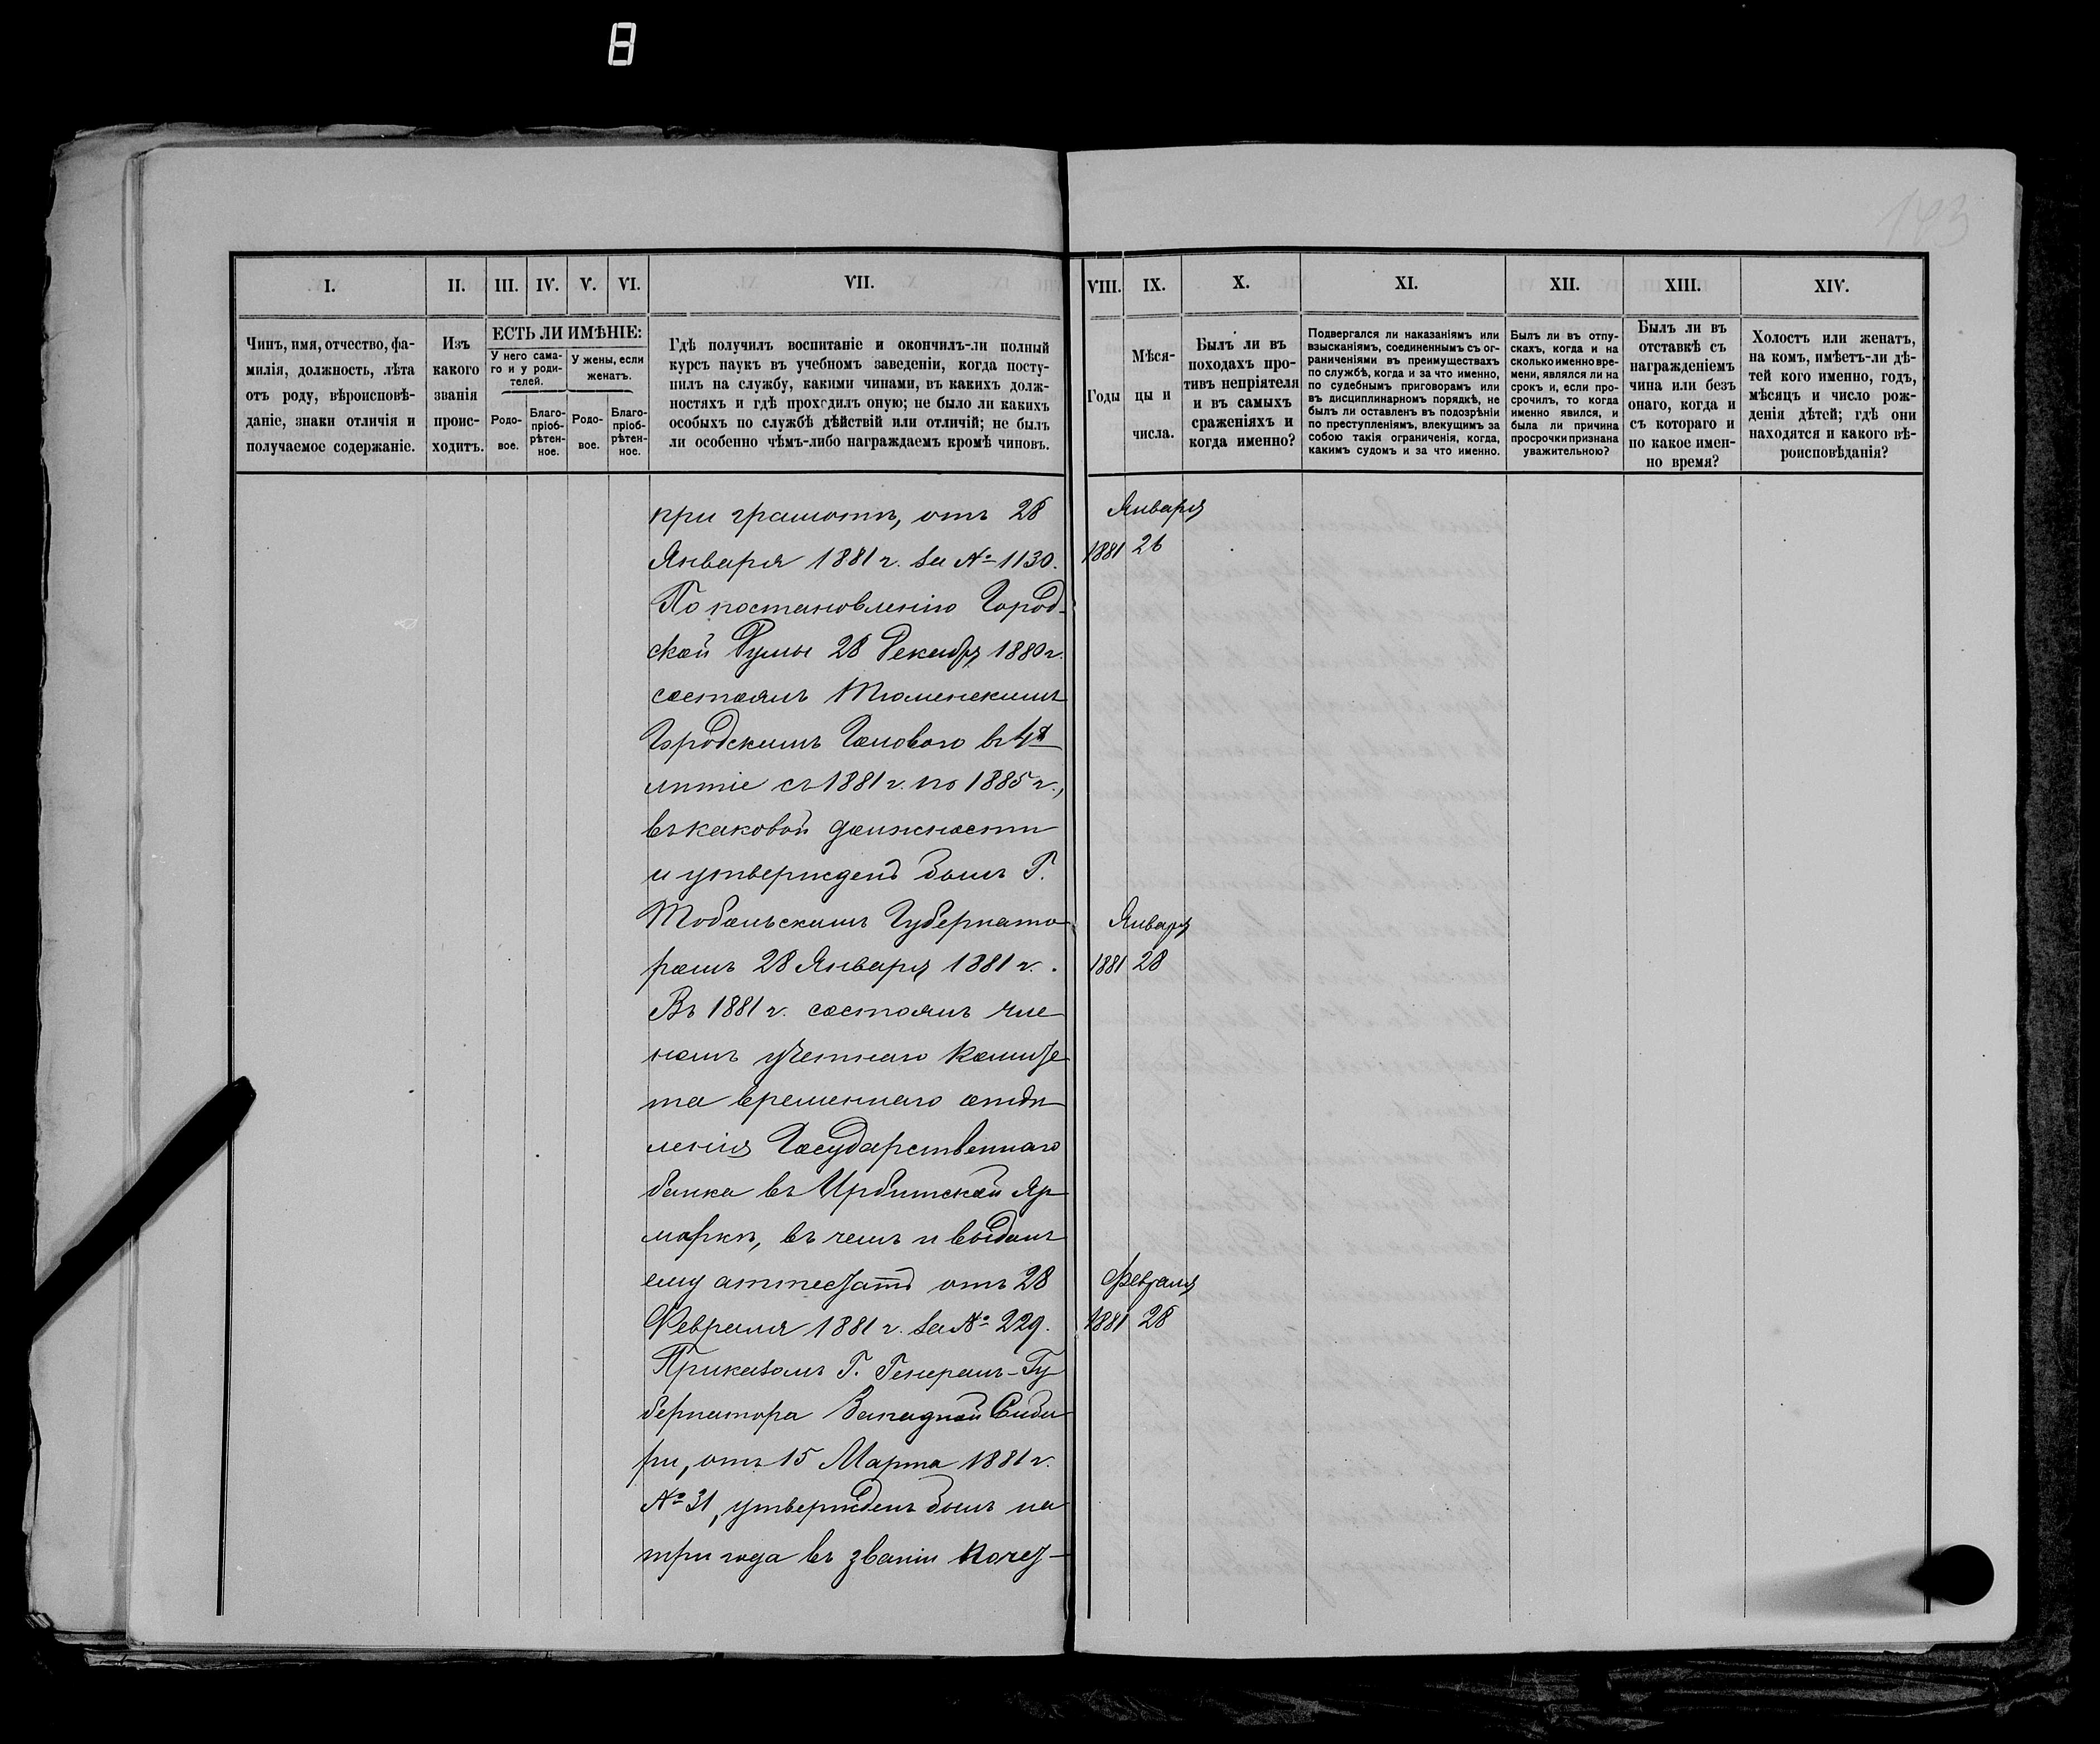 8
183
I.
II.
III.
IV.
V.
VI.
VII.
VIII.
IX.
X.
XI.
XII.
XIII.
XIV.
Чинъ, имя, отчество, фа-
милія, должность, лѣта
отъ роду, вѣроисповѣ-
даніе, знаки отличія и
получаемое содержаніе.
Изъ
какого
званія
проис-
ходитъ.
ЕСТЬ ЛИ ИМѢНІЕ:
У него сама-
го и у роди-
телей.
У жены, если
женатъ.
Родо-
вое.
Благо-
пріоб-
рѣтен-
ное.
Родо-
вое.
Благо-
пріоб-
рѣтен-
ное.
Гдѣ получилъ воспитаніе и окончилъ-ли полный
курсъ наукъ въ учебномъ заведеніи, когда посту-
пилъ на службу, какими чинами, въ какихъ долж-
ностяхъ и гдѣ проходилъ оную; не было ли какихъ
особыхъ по службѣ дѣйствій или отличій; не былъ
ли особенно чѣмъ-либо награждаемъ кромѣ чиновъ.
Годы
Мѣся-
цы и
числа.
Былъ ли въ
походахъ про-
тивъ непріятеля
и въ самыхъ
сраженіяхъ и
когда именно?
Подвергался ли наказаніямъ или
взысканіямъ, соединеннымъ съ ог-
раниченіями въ преимуществахъ
по службѣ, когда и за что именно,
по судебнымъ приговорамъ или
въ дисциплинарномъ порядкѣ, не
былъ ли оставленъ въ подозрѣніи
по преступленіямъ, влекущимъ за
собою такія ограниченія, когда,
какимъ судомъ и за что именно.
Былъ ли въ отпу-
скахъ, когда и на
сколько именно вре-
мени, являлся ли на
срокъ и, если про-
срочилъ, то когда
именно явился, и
была ли причина
просрочки признана
уважительною?
Былъ ли въ
отставкѣ съ
награжденіемъ
чина или безъ
онаго, когда и
съ котораго и
по какое имен-
но время?
Холостъ или женатъ,
на комъ, имѣетъ-ли дѣ-
тей кого именно, годъ,
мѣсяцъ и число рож-
денія дѣтей; гдѣ они
находятся и какого вѣ-
роисповѣданія?
при грамотѣ, отъ 28
Января 1881 г. за № 1130.
По постановленію Город-
ской Думы 28 Декабря 1880 г.
состоялъ Тюменскимъ
Городскимъ Головою въ 4х
лѣтіе съ 1881 г. по 1885 г.,
въ каковой должности
и утвержденъ былъ Г.
Тобольскимъ Губернато
ромъ 28 Января 1881 г.
Въ 1881 г. состоялъ чле
номъ учетнаго комите
та временнаго отдѣ
ленія Государственнаго
банка въ Ирбитской Яр
маркѣ, въ чемъ и выданъ
ему аттестатъ отъ 28
Февраля 1881 г. за № 229.
Приказомъ Г. Генералъ-Гу
бернатора Западной Сиби
ри, отъ 15 Марта 1881 г.
№ 31, утвержденъ былъ на
три года въ званіи почет-
Января
1881 26
Января
1881 28
Февраля
1881 28